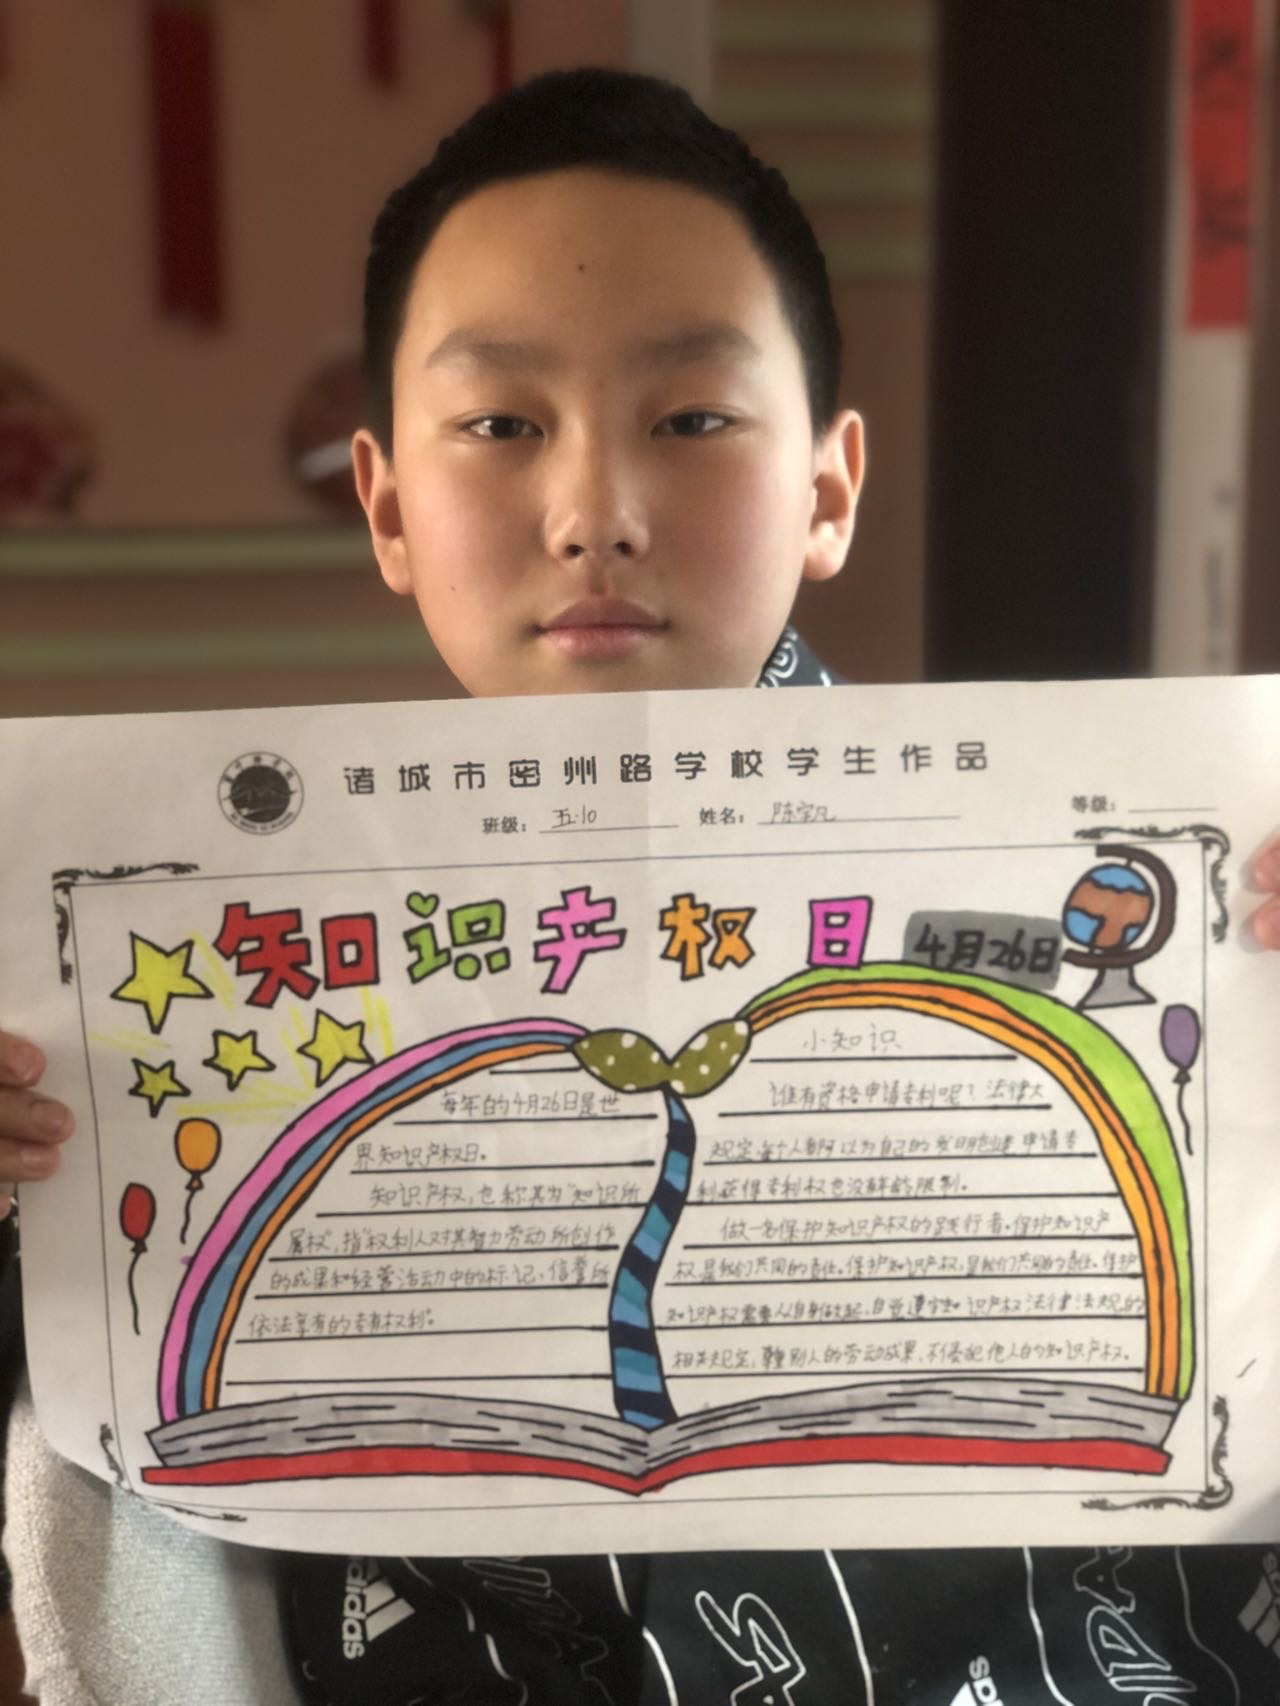 诸城市密州路学校学生作品
班级：五.10 姓名：陈宇凡 等级：
知识产权日 4月26日
每年的4月26日是世
界知识产权日。
知识产权，也称其为"知识所
属权"，指"权利人对其智力劳动所创作
的成果和经营活动中的标记、信誉所
依法享有的专有权利"。
小知识
谁有资格申请专利呢？法律大
规定，每个人都可以为自己的发明创建申请专
利，获得专利权也没年龄限制。
做一名保护知识产权的践行者。保护知识产
权，是我们共同的责任。保护知识产权，是我们共同的责任。保护
知识产权需要从自身做起，自觉遵守知识产权法律法规的
相关规定，尊重别人的劳动成果，不侵犯他人的知识产权。
adidas
adidas